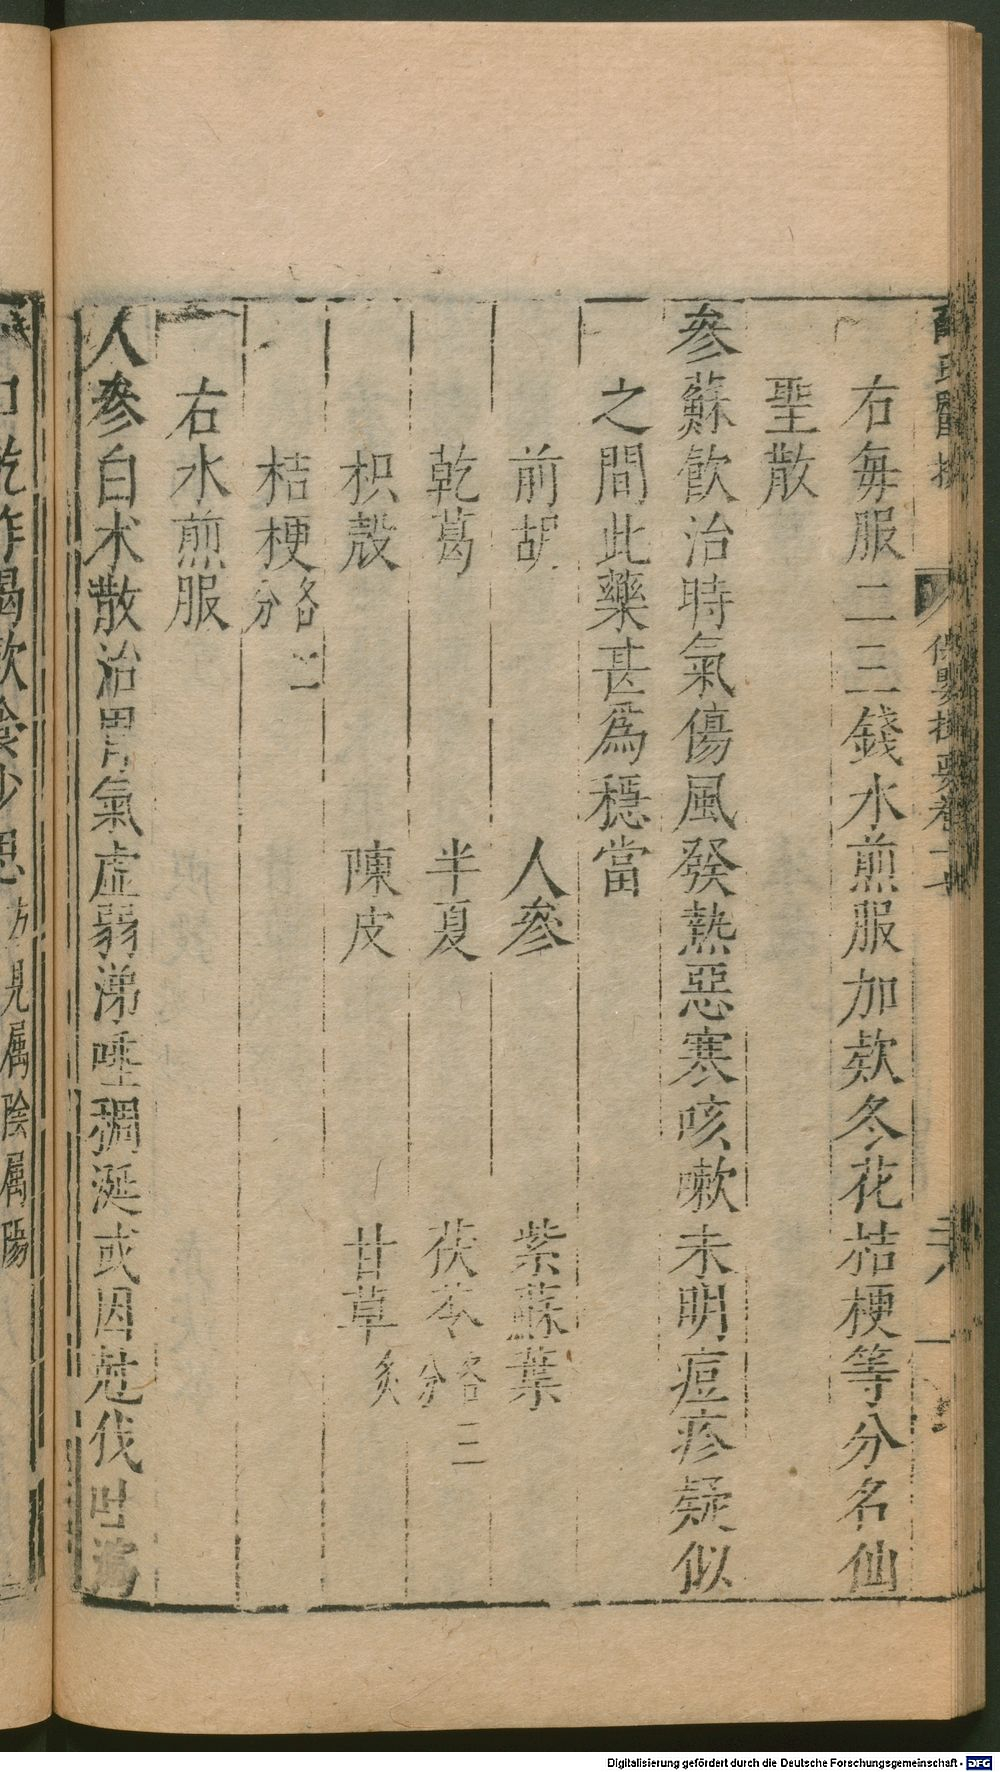 右每服二三錢水煎服加欵冬花桔梗等分名仙
聖散
參蘇飲治時氣傷風發熱惡寒咳嗽未明痘疹疑似
之間此藥甚為穩當
前胡 人參 紫蘇葉
乾葛 半夏 茯苓各三分
枳殻 陳皮 甘草炙
桔梗各二分
右水煎服
人參白朮散治胃氣虛弱涕唾稠涎或因尅伐吐瀉
口乾作渴飲食少思方見屬陰屬陽
Digitalisierung gefördert durch die Deutsche Forschungsgemeinschaft - DFG